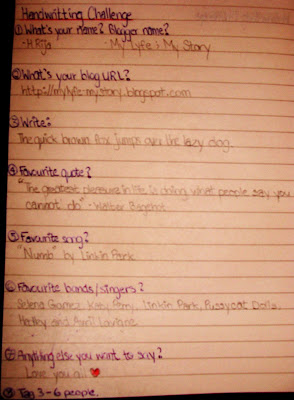 Handwritting Challenge
① What's your name? Blogger name?
-H Rija - My Lyfe; My Story
② What's your blog URL?
http://mylyfe-mystory.blogspot.com
③ Write:
The quick brown fox jumps over the lazy dog.
④ Favourite quote?
"The greatest pleasure in life is doing what people say you
cannot do" - Walter Bagehot
⑤ Favourite song?
"Numb" by Linkin Park
⑥ Favourite bands/singers?
Selena Gomez, Katy Perry, Linkin Park, Pussycat Dolls,
and Avril Lavigne
⑦ Anything else you want to say?
Love you all ♥
⑧ Tag 3-6 people.